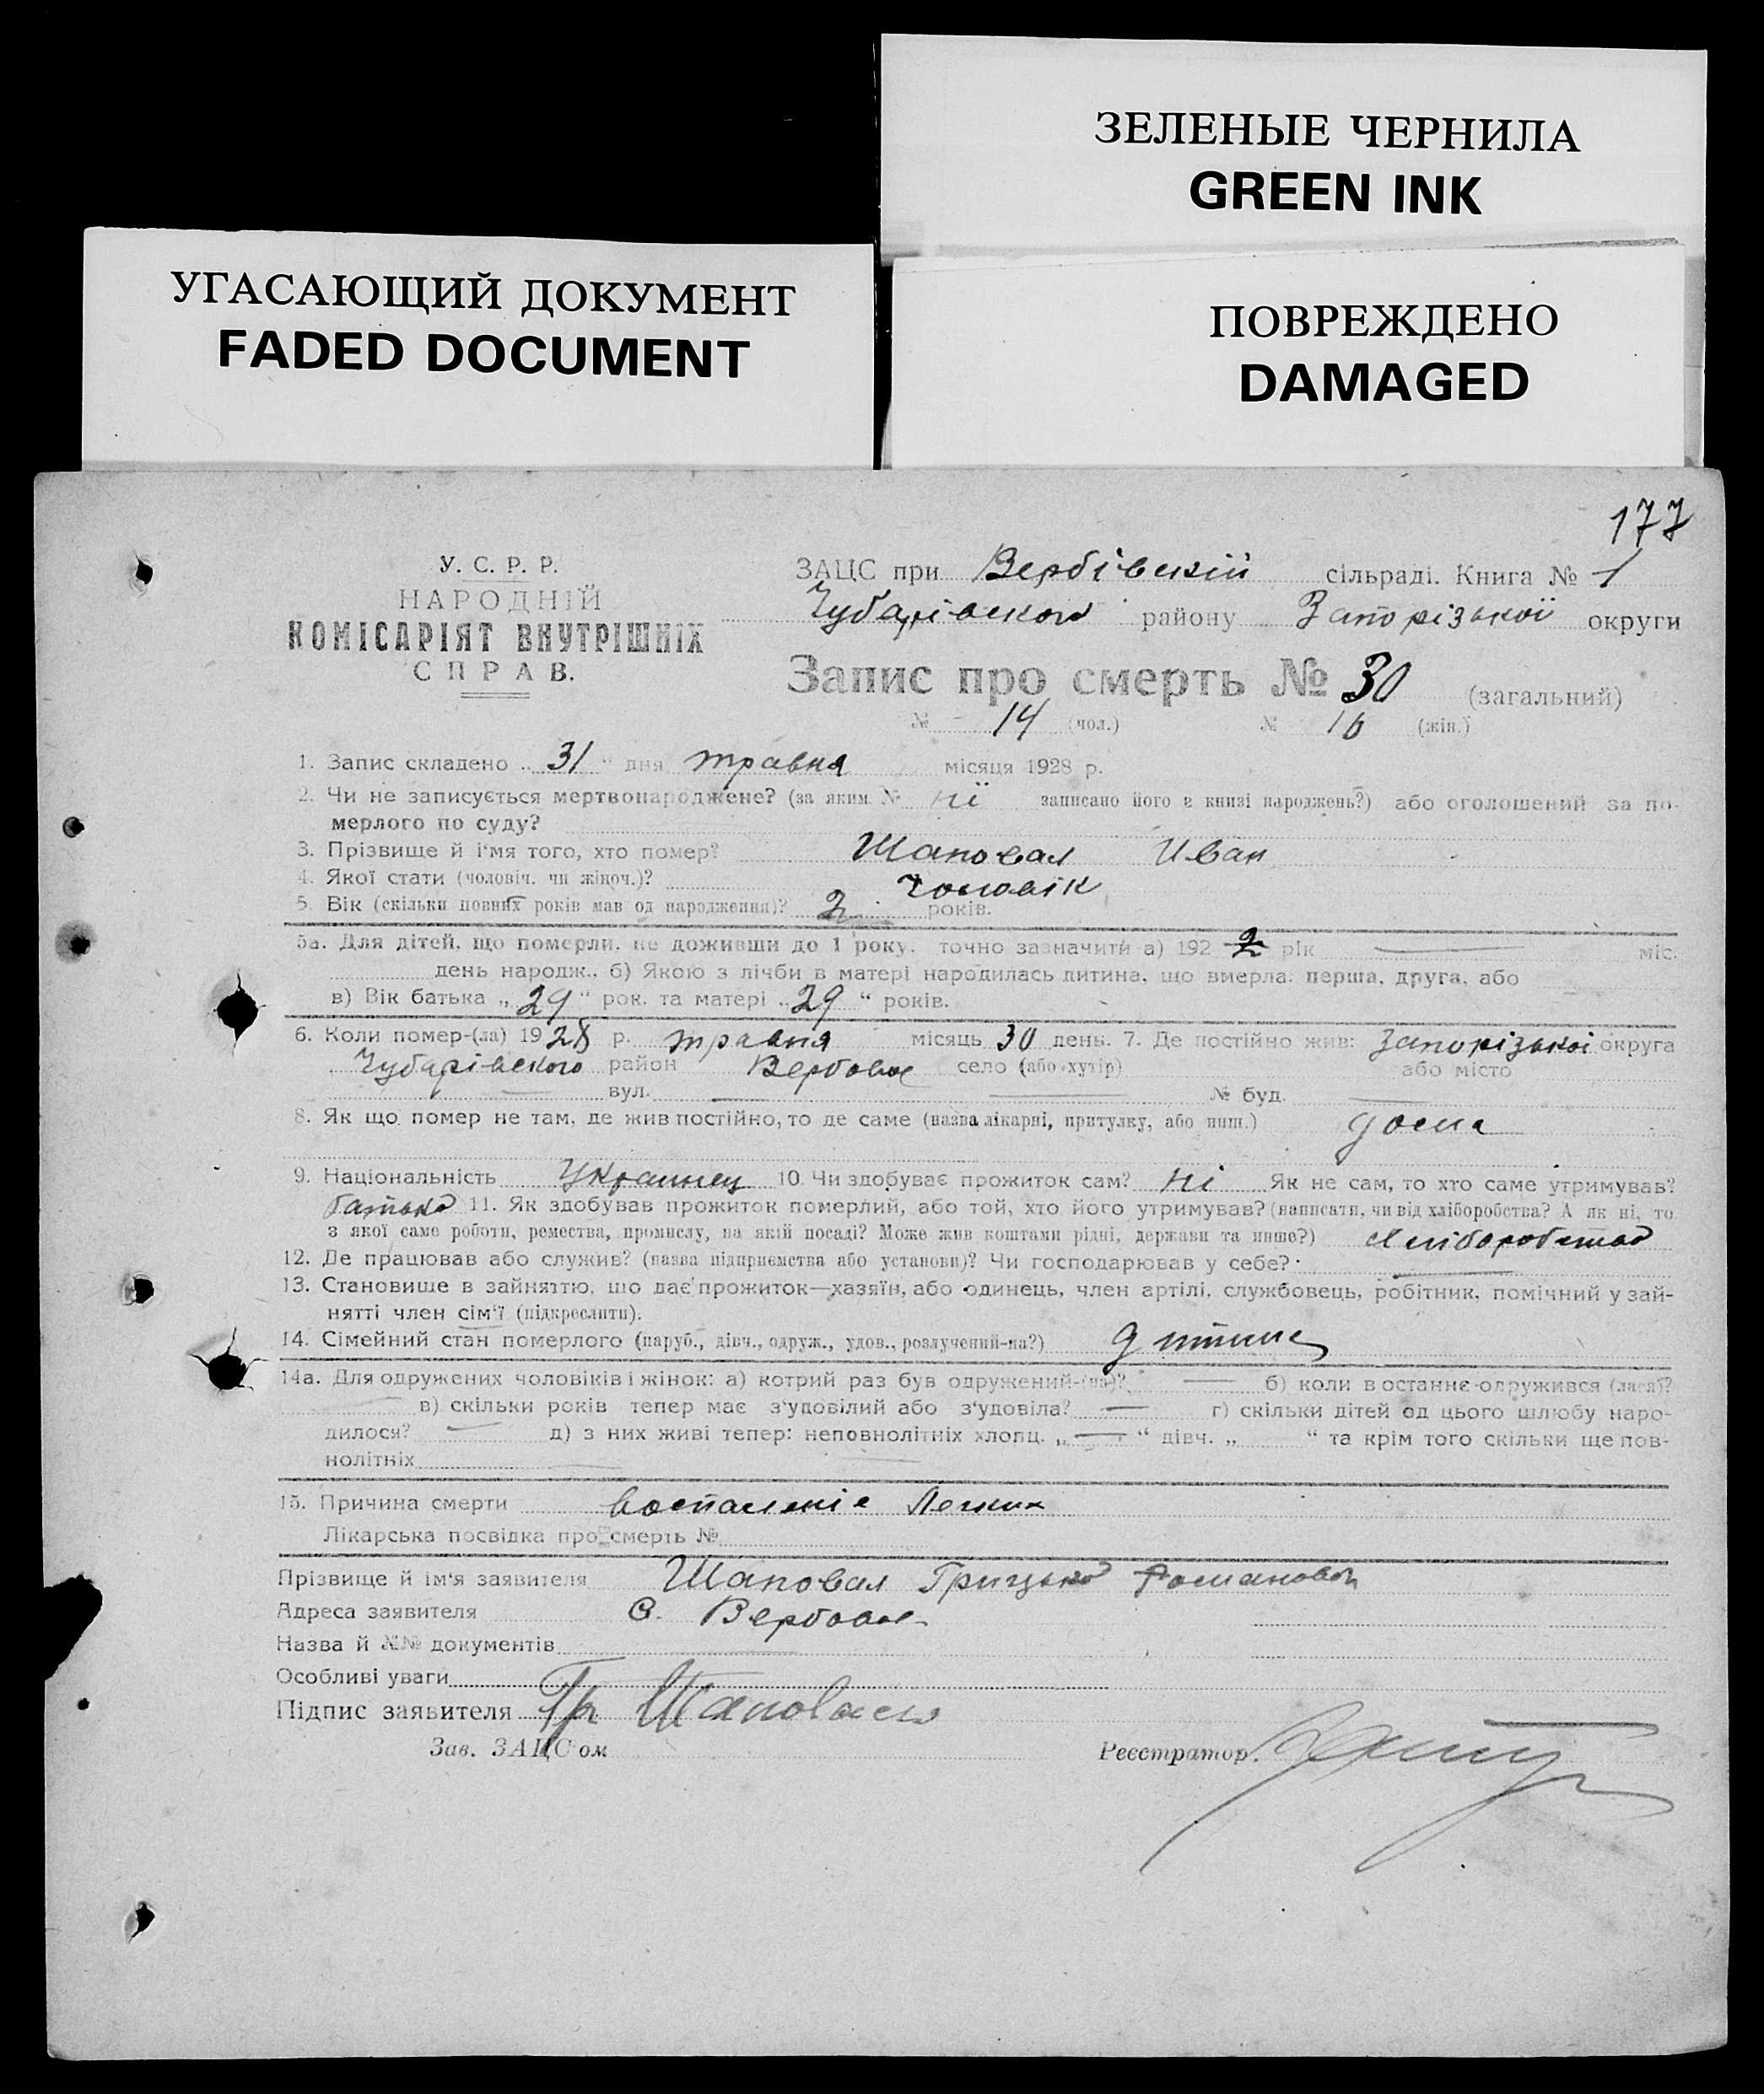 ЗЕЛЕНЫЕ ЧЕРНИЛА
GREEN INK
УГАСАЮЩИЙ ДОКУМЕНТ
FADED DOCUMENT
ПОВРЕЖДЕНО
DAMAGED
177
У. С. Р. Р.
НАРОДНІЙ
КОМІСАРІЯТ ВНУТРІШНІХ
СПРАВ.
ЗАЦС при Вербівській сільраді. Книга № 1
Чубарівского району Запорізької округи
Запис про смерть № 30 (загальний)
№ 14 (чол.) № 16 (жін.)
1. Запис складено „31“ дня травня місяця 1928 р.
2. Чи не записується мертвонароджене? (за яким № ні записано його в книзі народжень?) або оголошений за по-
мерлого по суду?
3. Прізвище й і'мя того, хто помер? Шаповал Иван
4. Якої стати (чоловіч. чи жіноч.)? Чоловік
5. Вік (скільки повних років мав од народження)? 2 років.
5а. Для дітей, що померли, не доживши до 1 року, точно зазначити а) 192 2 рік — міс.
день народж., б) Якою з лічби в матері народилась дитина, що вмерла: перша, друга, або
в) Вік батька „29“ рок. та матері „29“ років.
6. Коли помер-(ла) 1928 р. травня місяць 30 день. 7. Де постійно жив: Запорізької округа
Чубарівского район Вербовое село (або хутір) або місто
— вул. — № буд. —
8. Як що помер не там, де жив постійно, то де саме (назва лікарні, притулку, або инш.) дома
9. Національність Украинец 10. Чи здобуває прожиток сам? Ні Як не сам, то хто саме утримував?
батько 11. Як здобував прожиток померлий, або той, хто його утримував? (написати, чи від хліборобства? А як ні, то
з якої саме роботи, ремества, промислу, на якій посаді? Може жив коштами рідні, держави та инше?) Хліборобство
12. Де працював або служив? (назва підприємства або установи)? Чи господарював у себе? —
13. Становище в зайняттю, що дає прожиток—хазяїн, або одинець, член артілі, службовець, робітник, помічний у зай-
нятті член сім'ї (підкреслити).
14. Сімейний стан померлого (паруб., дівч., одруж., удов., розлучений-на?) дитина
14а. Для одружених чоловіків і жінок: а) котрий раз був одружений-(на)? — б) коли в останнє одружився (лася)?
— в) скільки років тепер має з'удовілий або з'удовіла? — г) скільки дітей од цього шлюбу наро-
дилося? — д) з них живі тепер: неповнолітніх хлопц. „—“ дівч. „ “ та крім того скільки ще пов-
нолітніх —
15. Причина смерти воспаленіе Легких
Лікарська посвідка про смерть №
Прізвище й ім'я заявителя Шаповал Грицько Романович
Адреса заявителя С. Вербовое
Назва й №№ документів
Особливі уваги
Підпис заявителя Гр Шаповал
Зав. ЗАЦС'ом Реєстратор.